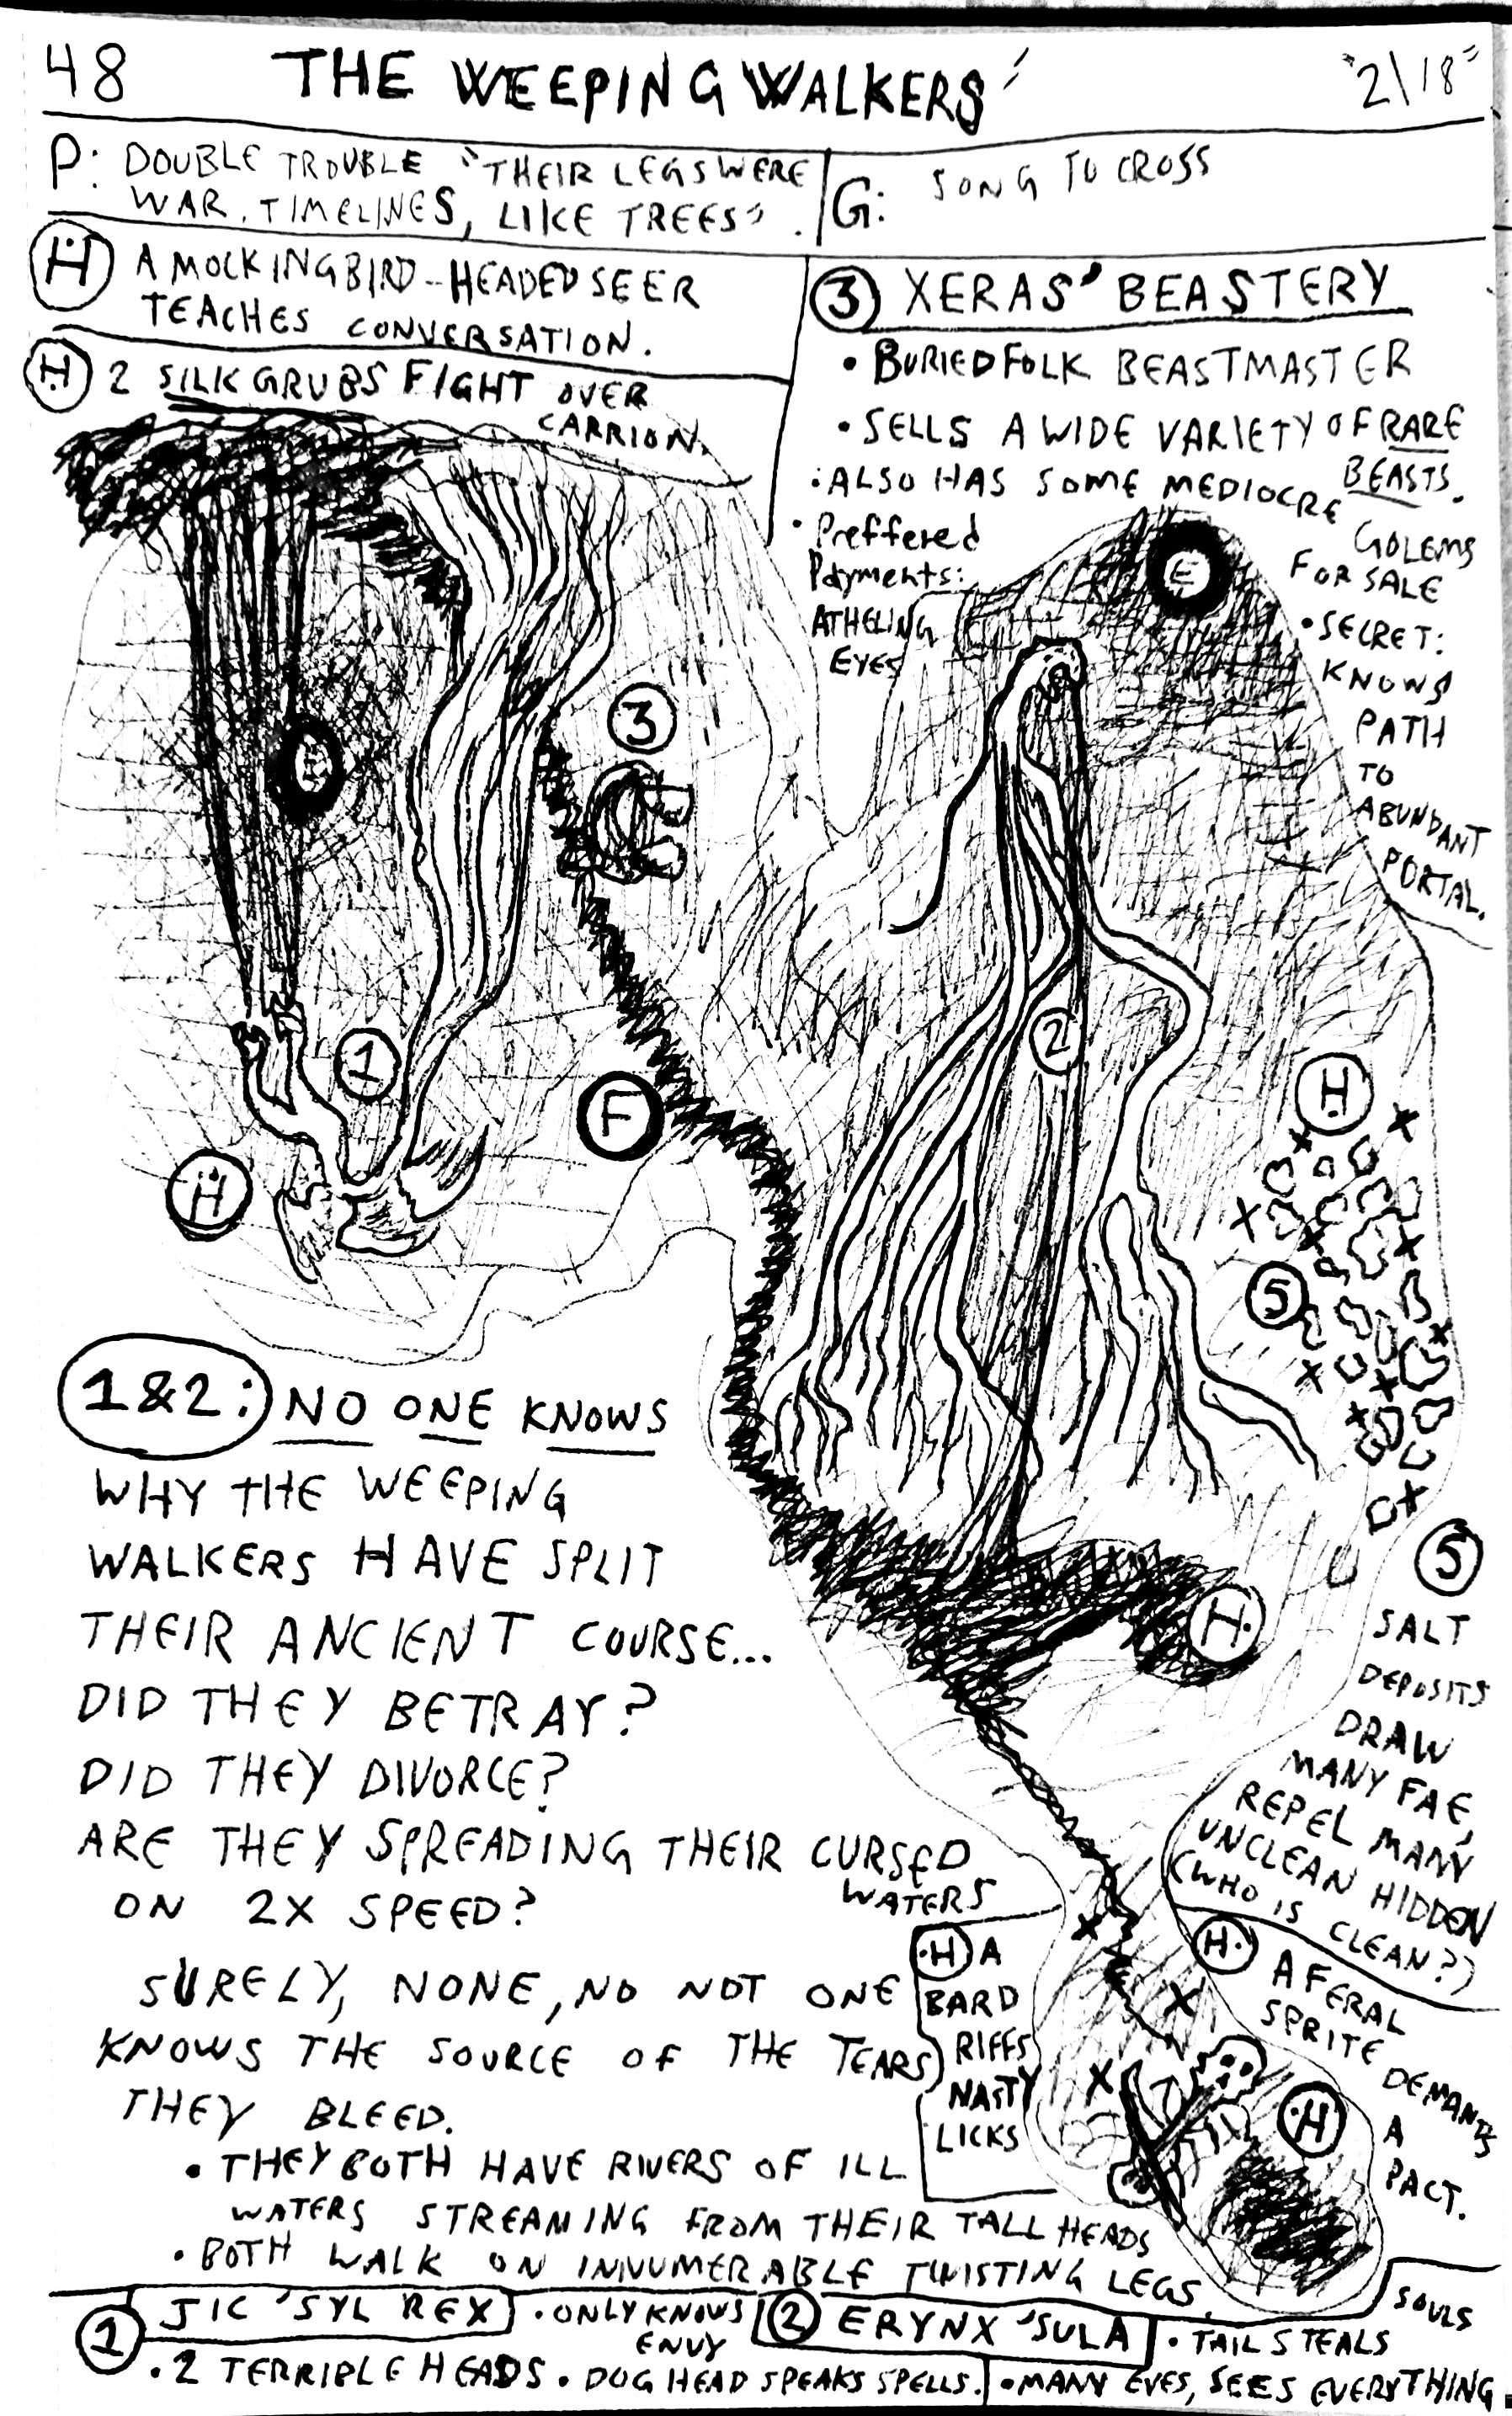 48
THE WEEPING WALKERS
"2\18"
P: DOUBLE TROUBLE "THEIR LEGS WERE
WAR. TIMELINES, LIKE TREES".
G: SONG TO CROSS
H A MOCKINGBIRD-HEADED SEER
TEACHES CONVERSATION.
H 2 SILK GRUBS FIGHT OVER
CARRION.
3 XERAS' BEASTERY
• BURIED FOLK BEASTMASTER
• SELLS A WIDE VARIETY OF RARE
BEASTS.
• ALSO HAS SOME MEDIOCRE
GOLEMS
FOR SALE
• Preffered
Payments:
ATHELING
EYES
• SECRET:
KNOWS
PATH
TO
ABUNDANT
PORTAL.
E
E
3
1
2
F
H
H
5
H
1&2: NO ONE KNOWS
WHY THE WEEPING
WALKERS HAVE SPLIT
THEIR ANCIENT COURSE...
DID THEY BETRAY?
DID THEY DIVORCE?
ARE THEY SPREADING THEIR CURSED
WATERS
ON 2X SPEED?
SURELY, NONE, NO NOT ONE
KNOWS THE SOURCE OF THE TEARS
THEY BLEED.
• THEY BOTH HAVE RIVERS OF ILL
WATERS STREAMING FROM THEIR TALL HEADS
• BOTH WALK ON INNUMERABLE TWISTING LEGS.
5
SALT
DEPOSITS
DRAW
MANY FAE,
REPEL MANY
UNCLEAN HIDDEN
(WHO IS CLEAN?)
H A
BARD
RIFFS
NASTY
LICKS
H A FERAL
SPRITE DEMANDS
A
PACT.
H
1 JIC 'SYL REX
• ONLY KNOWS
ENVY
• 2 TERRIBLE HEADS. • DOG HEAD SPEAKS SPELLS.
2 ERYNX 'SULA
• TAIL STEALS
SOULS
• MANY EYES, SEES EVERYTHING.